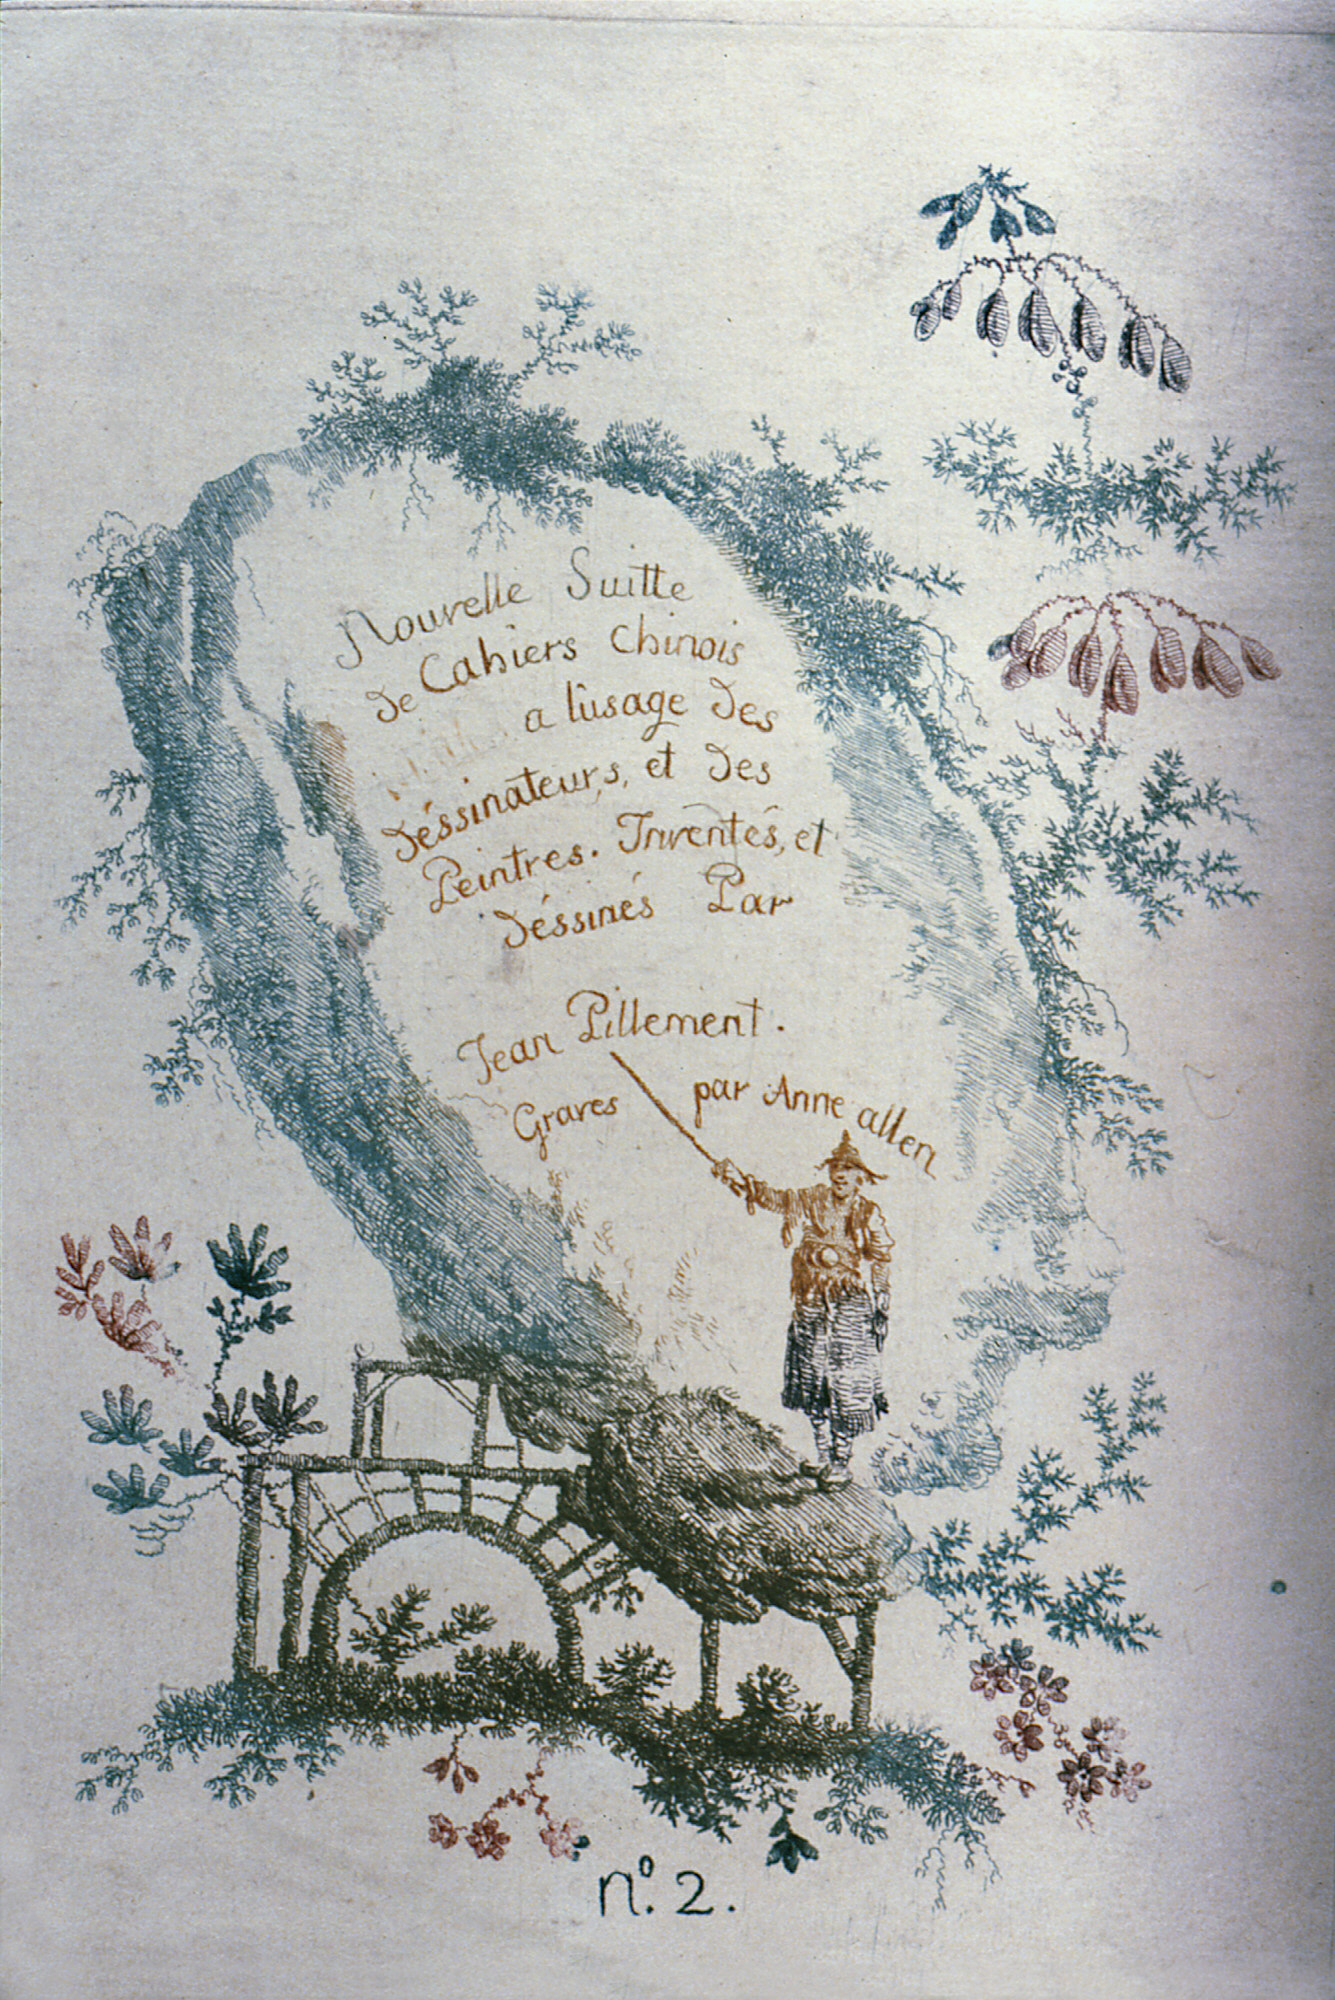 Nouvelle Suitte
de Cahiers Chinois
a l'usage des
déssinateurs, et des
Peintres. Inventés, et
déssinés Par
Jean Pillement.
Graves par Anne allen
nº. 2.